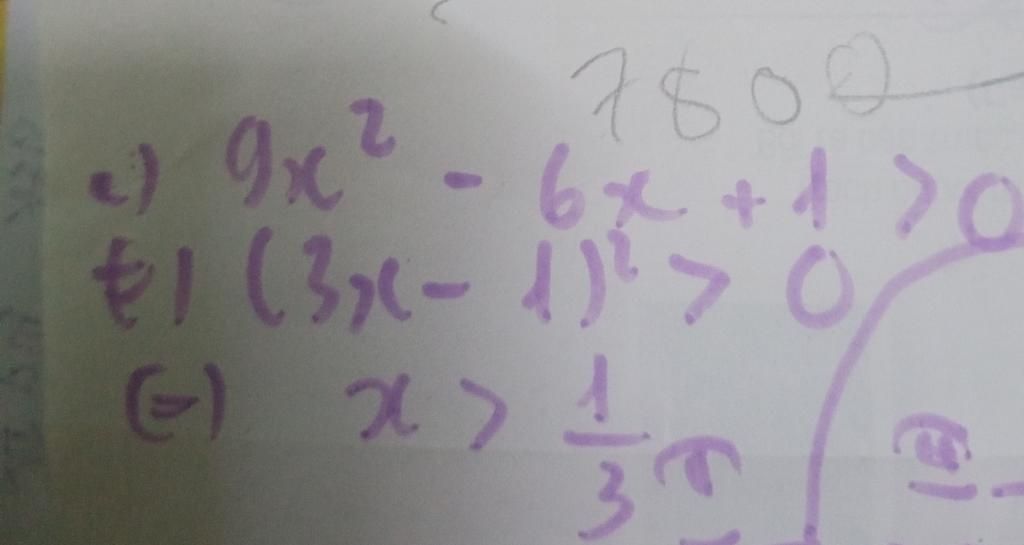 7800
c) 9x² - 6x + 1 > 0
(=) (3x - 1)² > 0
(=) x > 1/3